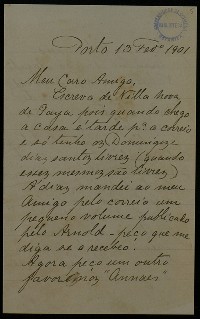 Porto 13 Fevº 1901
Meu Caro Amigo,
Escrevo de Villa Nova
de Gaya, pois quando chego
a casa é tarde pª o correio
e só tenho os Domingos e
dias santos livres (quando
esses mesmos são livres)
Há dias mandei ao meu
Amigo pelo correio um
pequeno volume publicado
pelo Arnold - peço que me
diga se o recebeu.
Agora peço um outro
favor. "Annaes"